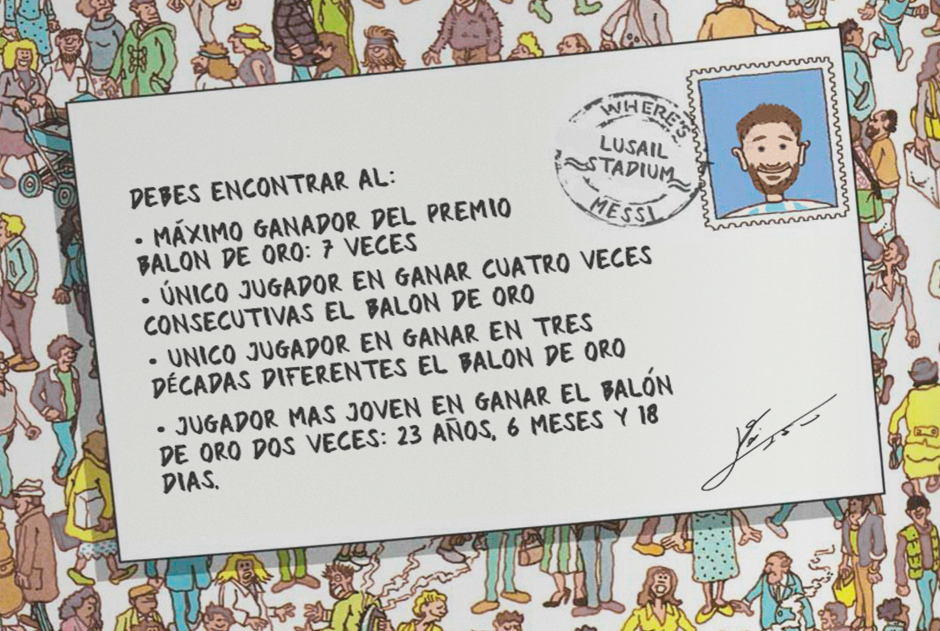 WHERE'S
LUSAIL
STADIUM
MESSI
DEBES ENCONTRAR AL:
• MÁXIMO GANADOR DEL PREMIO
BALON DE ORO: 7 VECES
• ÚNICO JUGADOR EN GANAR CUATRO VECES
CONSECUTIVAS EL BALON DE ORO
• UNICO JUGADOR EN GANAR EN TRES
DÉCADAS DIFERENTES EL BALON DE ORO
• JUGADOR MAS JOVEN EN GANAR EL BALÓN
DE ORO DOS VECES: 23 AÑOS, 6 MESES Y 18
DIAS.